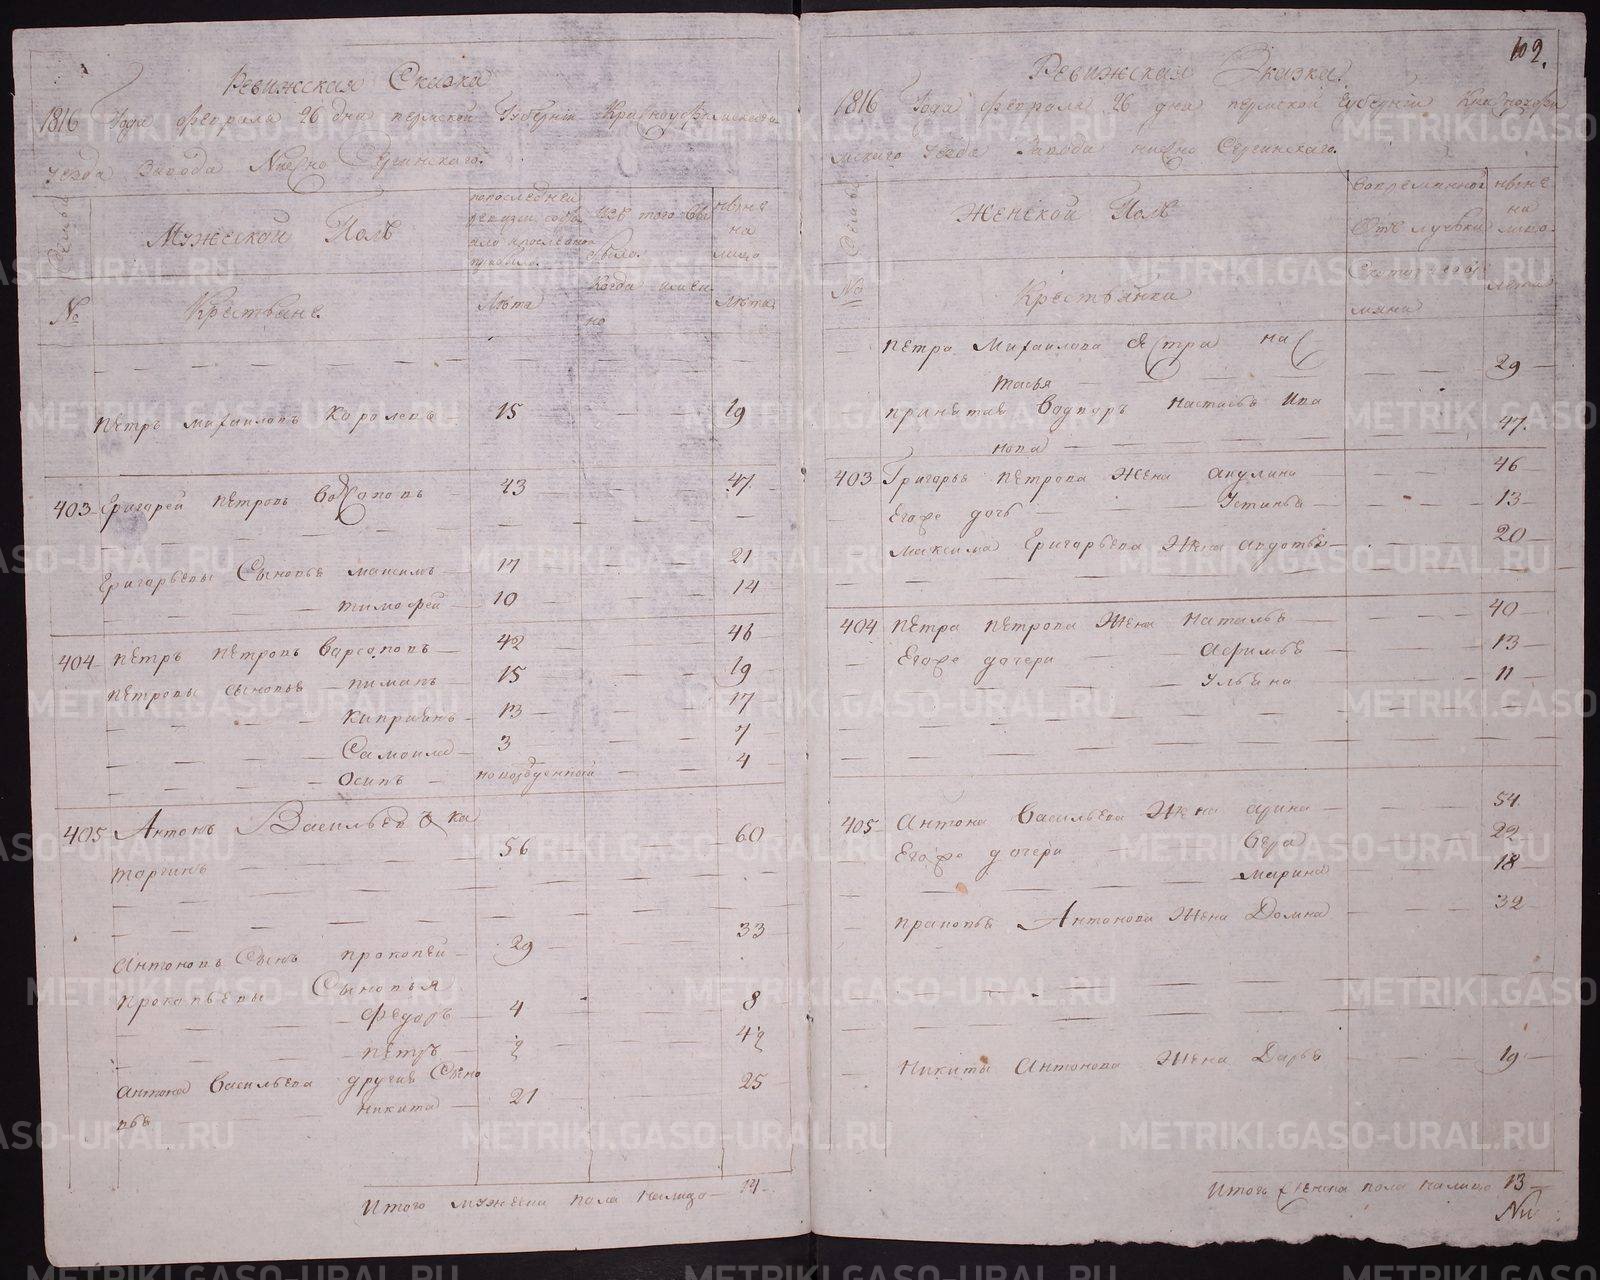 Ревижская Сказка
1816 Года февраля 26 дня пермской Губернïи Красноуфимскаго
уезда Завода Нижно Сергинскаго.
Семьи
Мужеской Полъ
попоследней
ревизïи состо
изъ того вы
было.
ныне
на
лицо
№
Крестьяне.
Лѣта
Когда имен
но
Лѣта
Петръ михаиловъ Королевъ 15 19
403 Григорей петровъ 43 47.
Григорьевы Сыновье максимъ 17 21
тимофей 10 14
404 петръ петровъ Варсановъ 42 46
петровы сыновье пиманъ 15 19
киприянъ 13 17
Самоила 3 7
Осипъ новорожденный 4
405 Антонъ Васильевъ Ка
торгинъ 56 60
Антоновъ Сынъ прокопей 29 33
прокопьевы Сыновья
федоръ 4 8
петръ
антона Васильева другие Сыно
вье никита 21 25
Итого мужеска пола налицо 14.
102.
Ревижская Сказка.
1816 Года февраля 26 дня пермской губернïи Красноуфи
мскаго уезда Завода нижно Сергинскаго.
Семьи
Женской Полъ
Вовременной
Отъ лучьки
ныне
на
лицо.
№
Крестьянки
лета
петра Михаилова Сестра нас
тасья 29
принятая Водворъ настасья Ива
нова 47.
403 Григорья петрова Жена акулина 46
Егоже дочь Устинья 13
максима Григорьева Жена авдотья 20
404 петра петрова Жена наталья 40
Егоже дочери Афимья 13
Ульяна 11
405 Антона Васильева Жена арина 54.
Егоже дочери Вера 22
марина 18
пракопья Антонова Жена Домна 32
Никиты Антонова Жена Дарья 19
Итого Женска пола налицо 13
METRIKI.GASO-URAL.RU